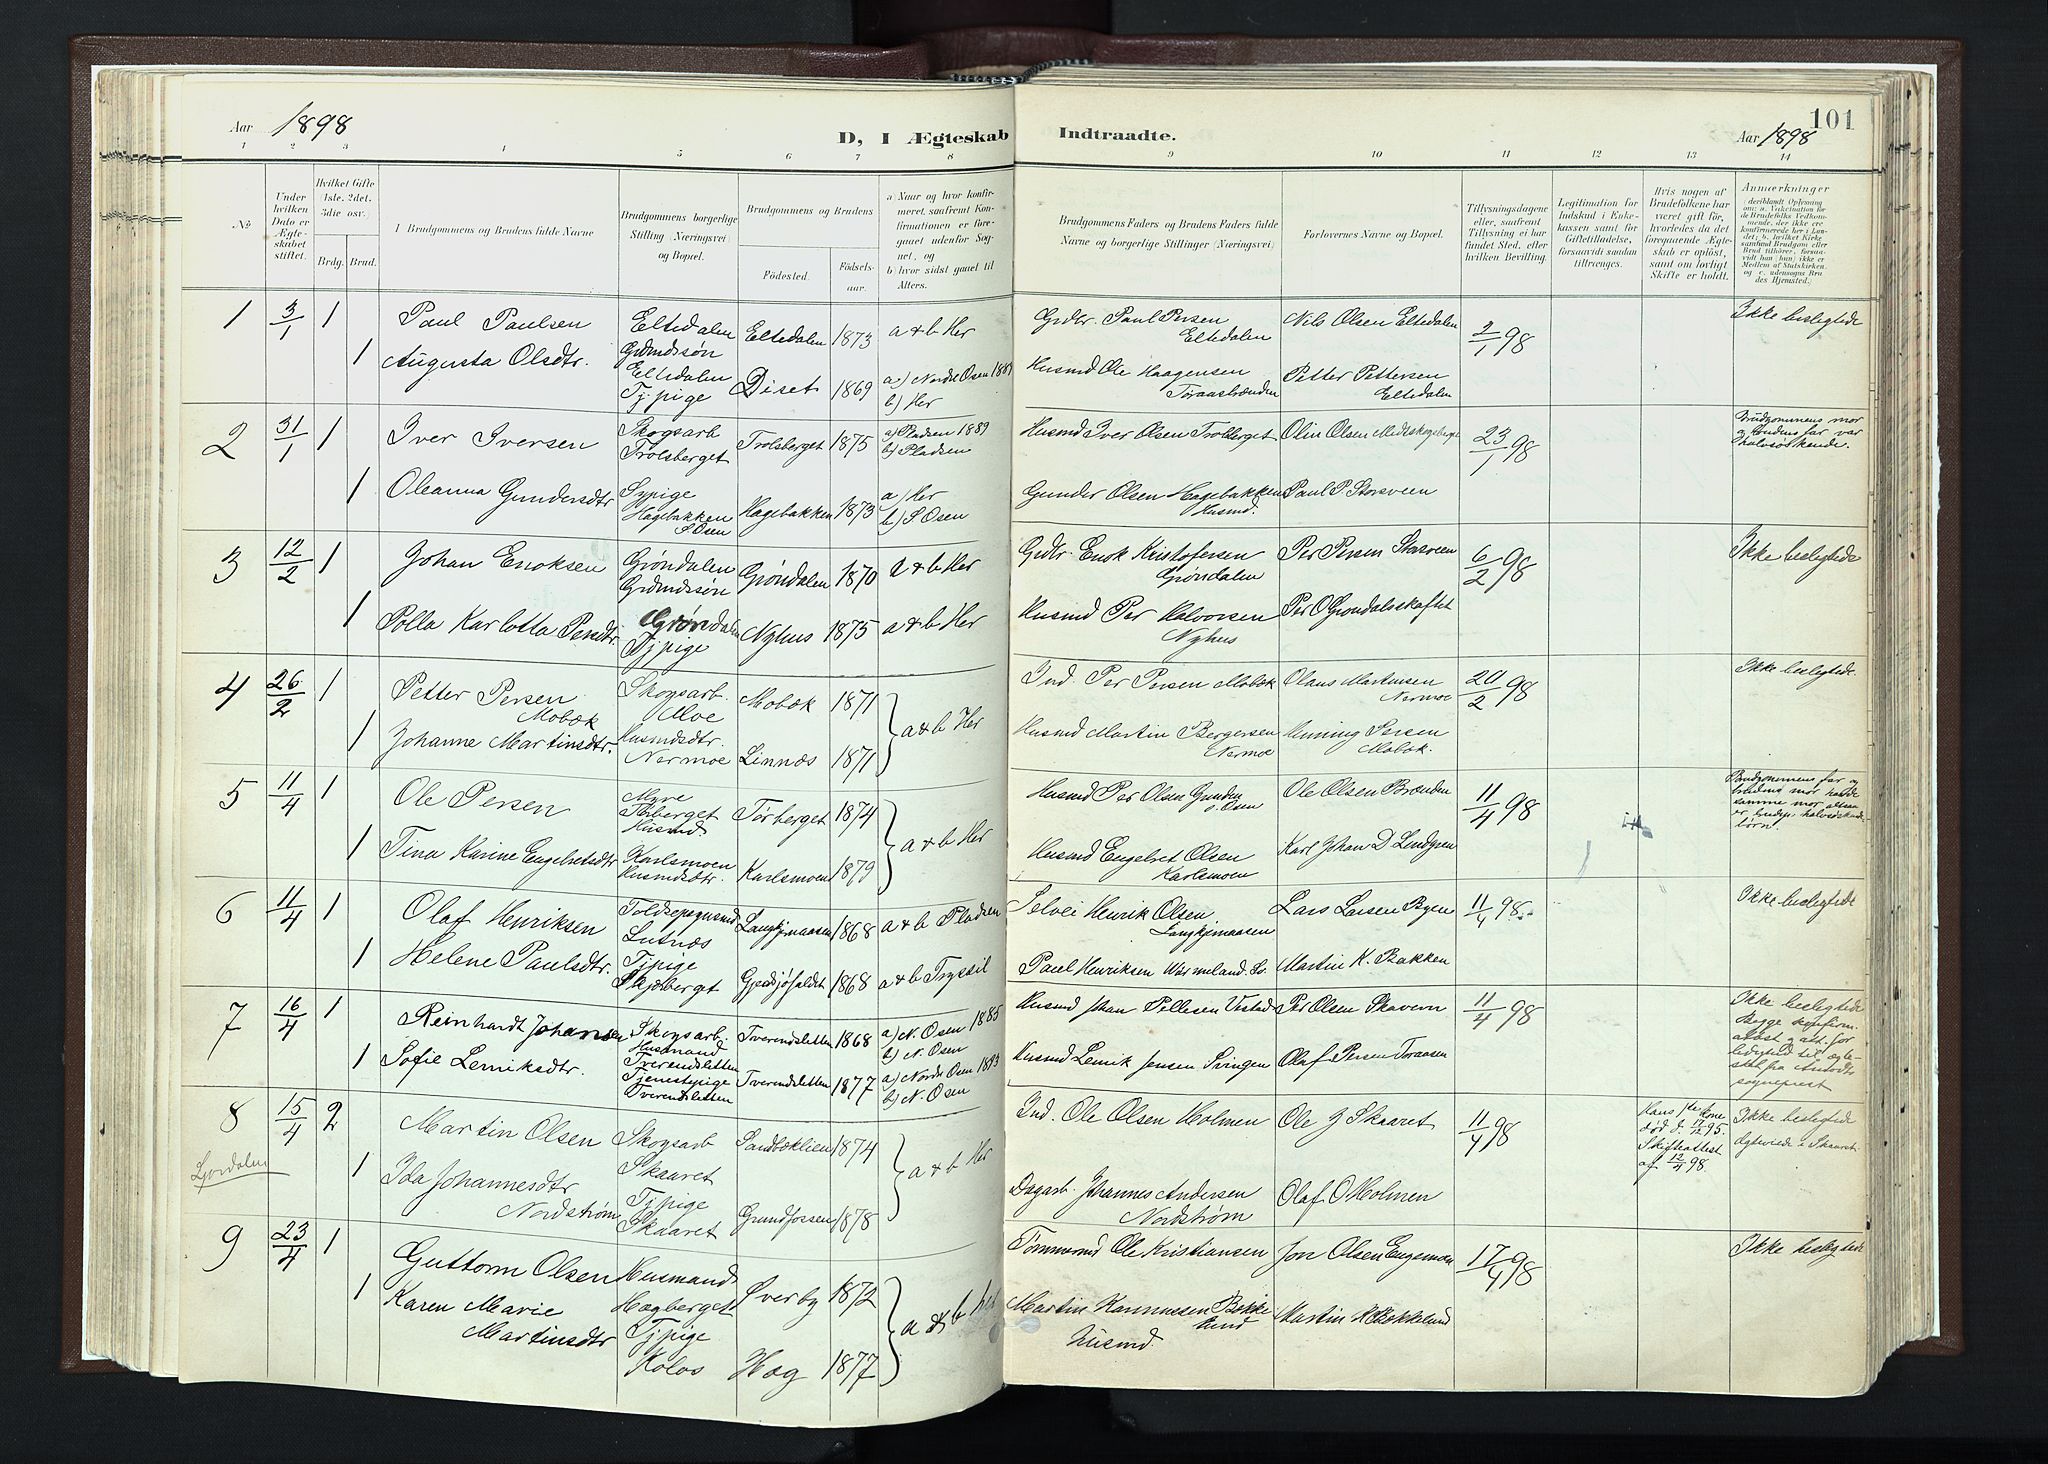 Aar 1898
D, I Ægteskab
Indtraadte.
101
Aar 1898
1 2 3 4 5 6 7 8 9 10 11 12 13 14
No
Under hvilken Dato er Ægteskabet stiftet.
Hvilket Gifte (1ste. 2det. 3die osv.)
Brdg. Brud.
Brudgommens og Brudens fulde Navne
Brudgommens borgerlige Stilling (Næringsvei) og Bopæl.
Brudgommens og Brudens
Fødested.
Fødsels-aar.
a Naar og hvor konfirmeret, saafremt Konfirmationen er foregaaet udenfor Sognet, og
b hvor sidst gaaet til Alters.
Brudgommens Faders og Brudens Faders fulde Navne og borgerlige Stillinger (Næringsvei)
Forlovernes Navne og Bopæl.
Tillysningsdagene eller, saafremt Tillysning ei har fundet Sted, efter hvilken Bevilling.
Legitimation for Indskud i Enkekassen samt for Giftetilladelse, forsaavidt saadan tiltrænges.
Hvis nogen af Brudefolkene har været gift før, hvorledes da det foregaaende Ægteskab er opløst, samt om lovligt Skifte er holdt.
Anmærkninger
1 3/1 1 Paul Paulsen Eltedalen Grdmdssøn Eltedalen 1873 a & b Her Grdbr. Paul Persen Eltedalen Nils Olsen Eltedalen 2/1 98 Ikke beslegtede
1 Augusta Olsdtr. Eltedalen Tj.pige Diset 1869 a) Nordre Osen b) Her Husmd Ole Haagensen Petter Pettersen Eltedalen
2 31/1 1 Iver Iversen Skogsarb Trolsberget Trolsberget 1875 a) Pladsen 1889 b) Pladsen Husmd Iver Olsen Trolberget Olin Olsen 23/1 98 Brudgommens mor og Brudens far var halvsøskende.
1 Oleanna Gundersdtr Sypige Hagebakken S Osen Hagebakken 1873 a) Her b) S Osen Gunder Olsen Hagebakken Husmd. Paul P. Storsveen
3 12/2 1 Johan Enoksen Grøndalen Grdmdssøn Grøndalen 1870 a & b Her Grdbr. Enok Kristofersen Grøndalen Per Persen Storsveen 6/2 98 Ikke beslegtede
1 Polla Karlotta Persdtr. Grøndalen Tj.pige Nyhus 1875 a & b Her Husmd Per Halvorsen Nyhus Per O Grøndalsskaftet
4 26/2 1 Petter Persen Mobæk Skogsarb. Moe Mobæk 1871 a & b Her Ind. Per Persen Mobæk Olaus Martinsen Nermoe 20/2 98 Ikke beslegtede
1 Johanne Martinsdtr. Husmdsdtr. Nermoe Linnæs 1871 Husmd Martin Bergersen Nermoe Henning Persen Mobæk.
5 11/4 1 Ole Persen Myre Tørberget Husmd Tørberget 1874 a & b Her Husmd Per Olsen Ole Olsen Brænden 11/4 98
1 Tina Karine Engebretsdtr Karlsmoen Husmdsdtr. Karlsmoen 1879 Husmd Engebret Olsen Karlsmoen Karl Johan D. Lendgren
6 11/4 1 Olaf Henriksen Lutnæs 1868 a & b Pladsen Selvei Henrik Olsen Lars Larsen Byen 11/4 98. Ikke beslegtede
1 Helene Paulsdtr. Tj.pige Skjærberget 1868 a & b Trysil Paul Henriksen Wærmeland. Sv. Martin K. Bakken
7 16/4 1 Reinhardt Johansen Skogsarb. Husmand Tverendsletten Tverendsletten 1868 a) N. Osen 1885 b) N. Osen Husmd Johan Pellesen Per Olsen 11/4 98 Ikke beslegtede
1 Sofie Lemiksdtr. Tjenestepige Tverendsletten Tverendsletten 1877 a) Nordre Osen 1893 b) N. Osen Husmd Lemik Jensen Svingen Olaf Persen Toraasen
8 15/4 2 Martin Olsen Skogsarb Skaaret Sandbæklien 1874 a & b Her Ind. Ole Olsen Holmen Ole J Skaaret 11/4 98 Hans 1ste kone død d. 17/12 95. Skifteattest af 12/4 98. Ikke beslegtede Ægteviede i Skaaret.
Ljørdalen
1 Ida Johannesdtr Nordstrøm Tj.pige Skaaret Grundfossen 1878 Dagarb. Johannes Andersen Nordstrøm Olaf O Holmen
9 23/4 1 Guttorm Olsen Husmand Hagberget Øverby 1872 a & b her Tømmermd Ole Kristiansen Jon Olsen Engemoen 17/4 98 Ikke beslegtede
1 Karen Marie Martinsdtr Tj.pige Kolos Hag 1877 Martin Rasmussen Bækkelund Husmd. Martin R Bækkelund